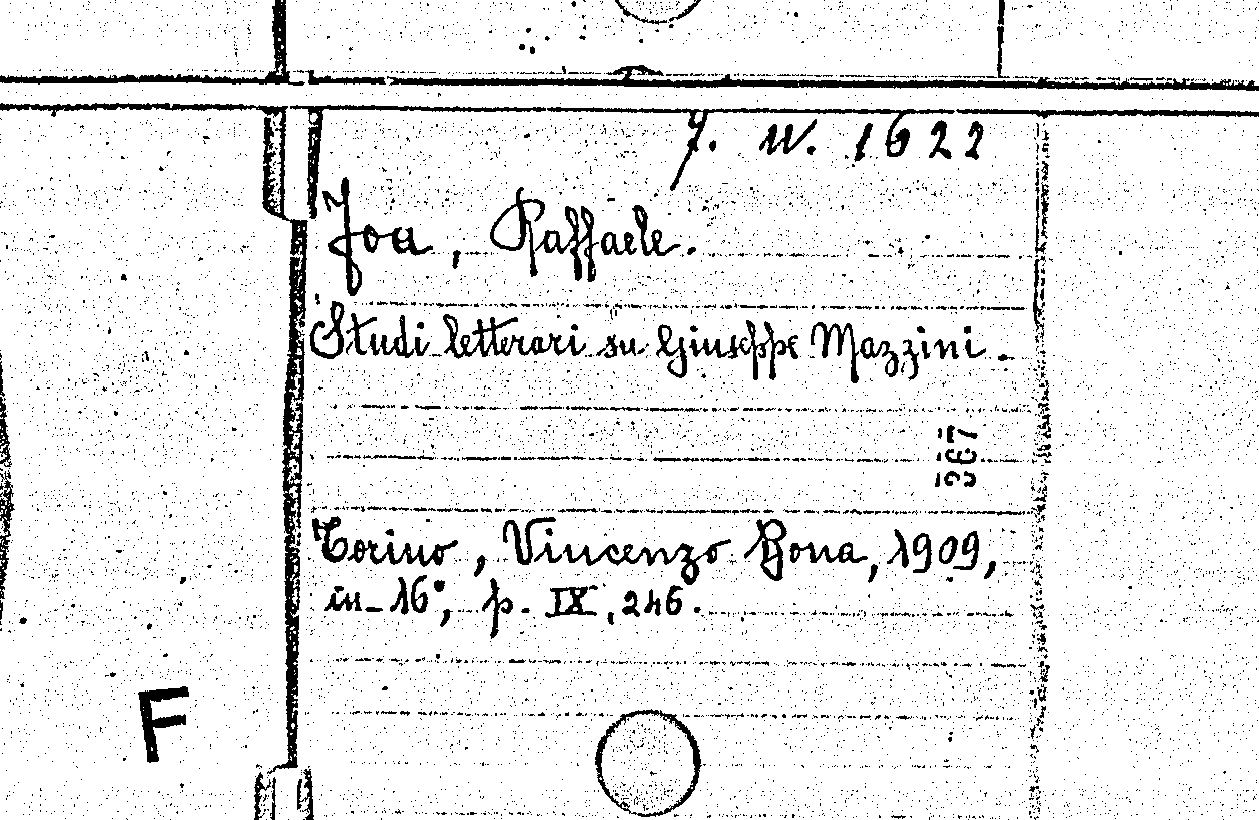 7. W. 1622
Foa, Raffaele.
Studi letterari su Giuseppe Mazzini.
367
Torino, Vincenzo Bona, 1909,
in-16°, p. IX, 246.
F